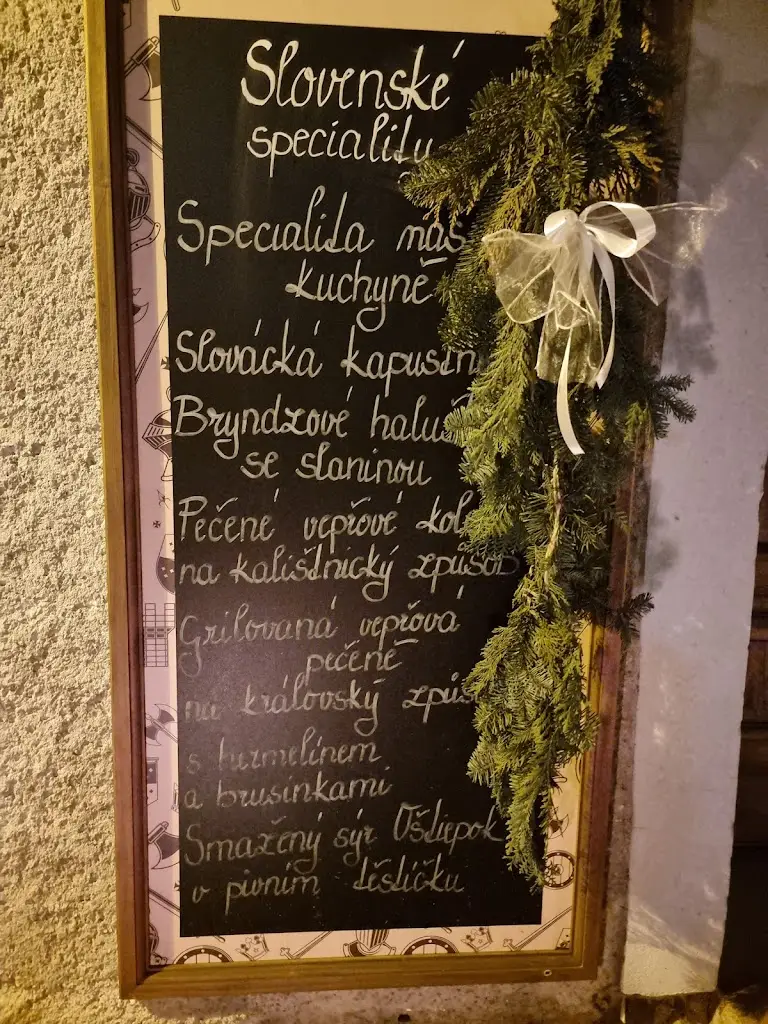 Slovenské
speciality
Specialita naš
kuchyně
Slovácká kapustn
Bryndzové haluš
se slaninou
Pečené vepřové kol
na kalištnický způsob
Grilovaná vepřová
pečeně
na královský způs
s hermelínem
a brusinkami
Smažený sýr Oštiepok
v pivním těstíčku